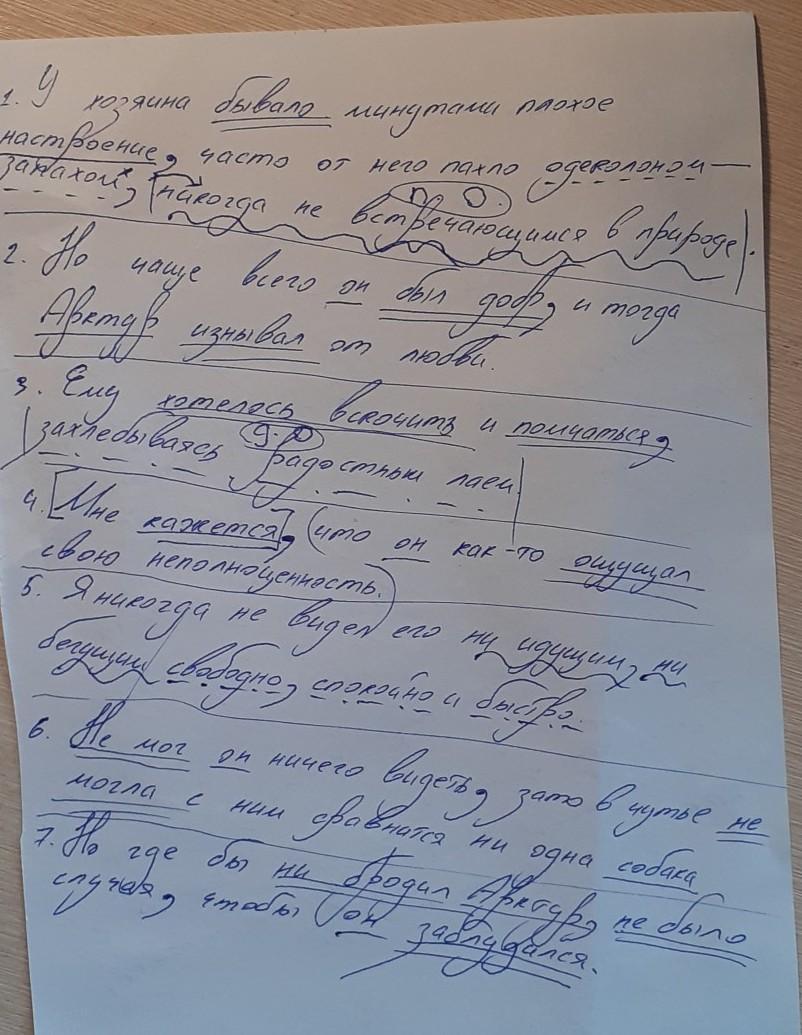 1. У хозяина бывало минутами плохое
настроение, часто от него пахло одеколоном —
запахом, никогда не встречающимся в природе.
п. о.
2. Но чаще всего он был добр, и тогда
Арктур изнывал от любви.
3. Ему хотелось вскочить и помчаться,
захлебываясь радостным лаем.
д. о
4. [Мне кажется], (что он как-то ощущал
свою неполноценность.)
5. Я никогда не видел его ни идущим, ни
бегущим свободно, спокойно и быстро.
6. Не мог он ничего видеть, зато в чутье не
могла с ним сравнится ни одна собака
7. Но где бы ни бродил Арктур, не было
случая, чтобы он заблудился.